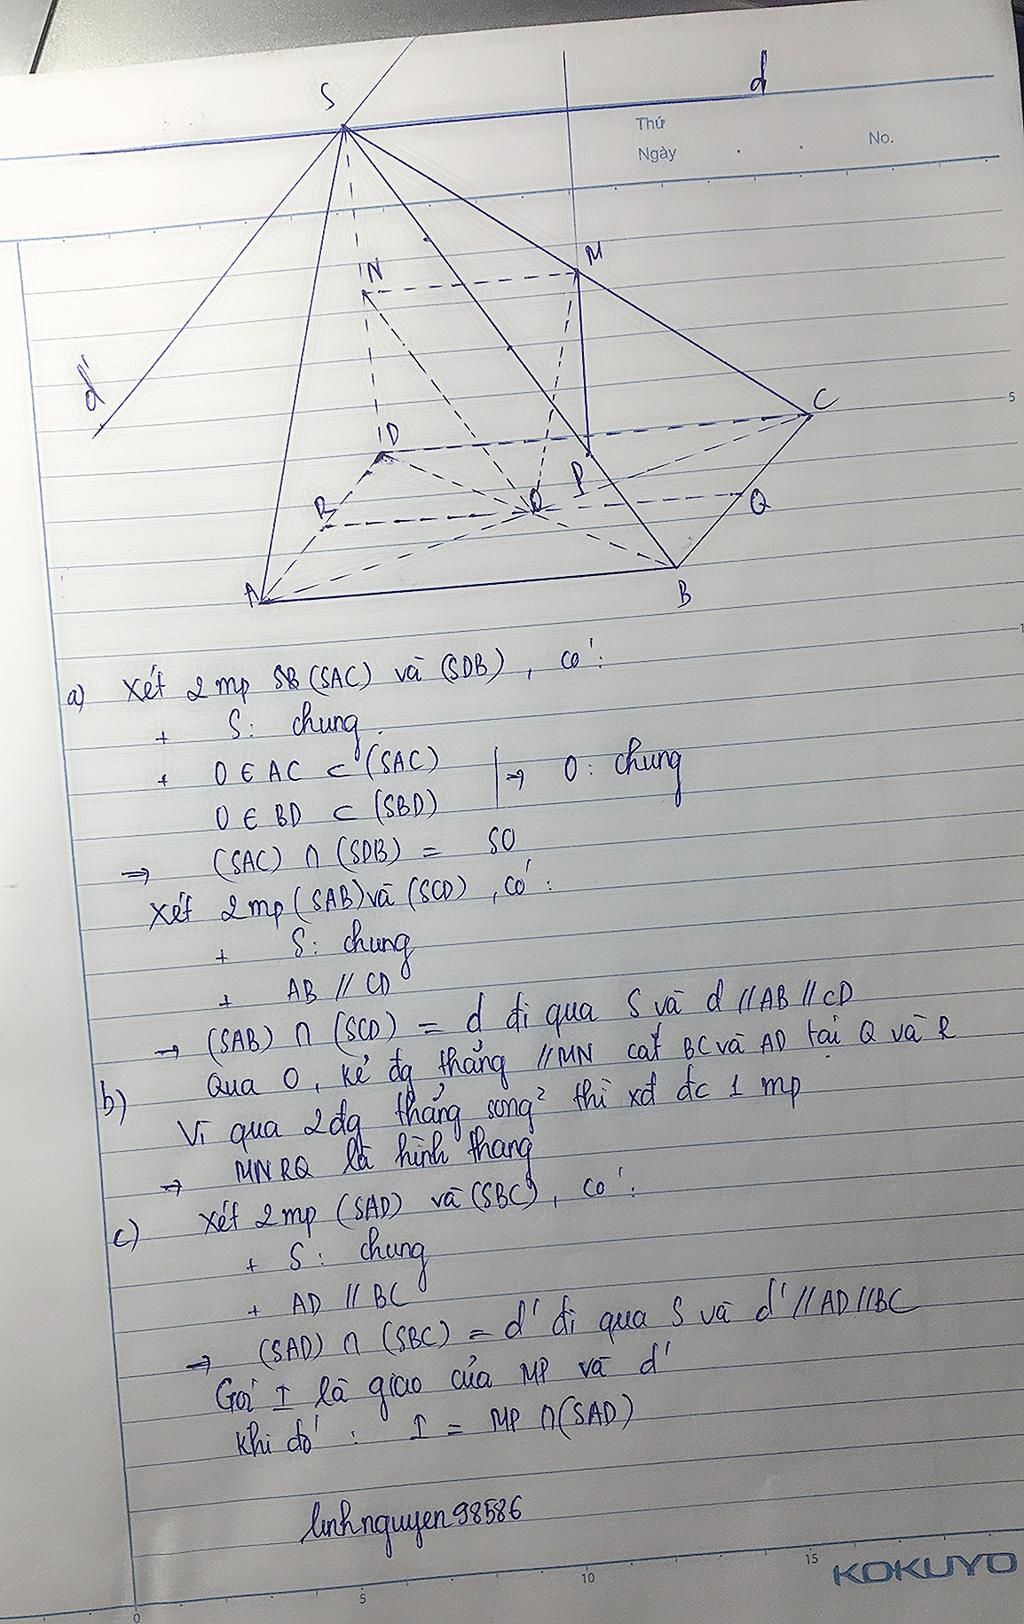 S
d
Thứ
Ngày
No.
N
M
d'
5
D
C
R
O
P
Q
A
B
a) Xét 2 mp SB (SAC) và (SDB), có:
+ S: chung.
+ O ∈ AC ⊂ (SAC)
O ∈ BD ⊂ (SBD) | → O: chung
⇒ (SAC) ∩ (SDB) = SO
Xét 2 mp (SAB) và (SCD), có:
+ S: chung
+ AB // CD
→ (SAB) ∩ (SCD) = d đi qua S và d // AB // CD
b) Qua O, kẻ đg thẳng // MN cắt BC và AD tại Q và R
Vì qua 2 đg thẳng song² thì xđ đc 1 mp
⇒ MNRQ là hình thang
c) Xét 2 mp (SAD) và (SBC), có:
+ S: chung
+ AD // BC
⇒ (SAD) ∩ (SBC) = d' đi qua S và d' // AD // BC
Gọi I là giao của MP và d'
Khi đó: I = MP ∩ (SAD)
linhnguyen98586
KOKUYO
0 5 10 15